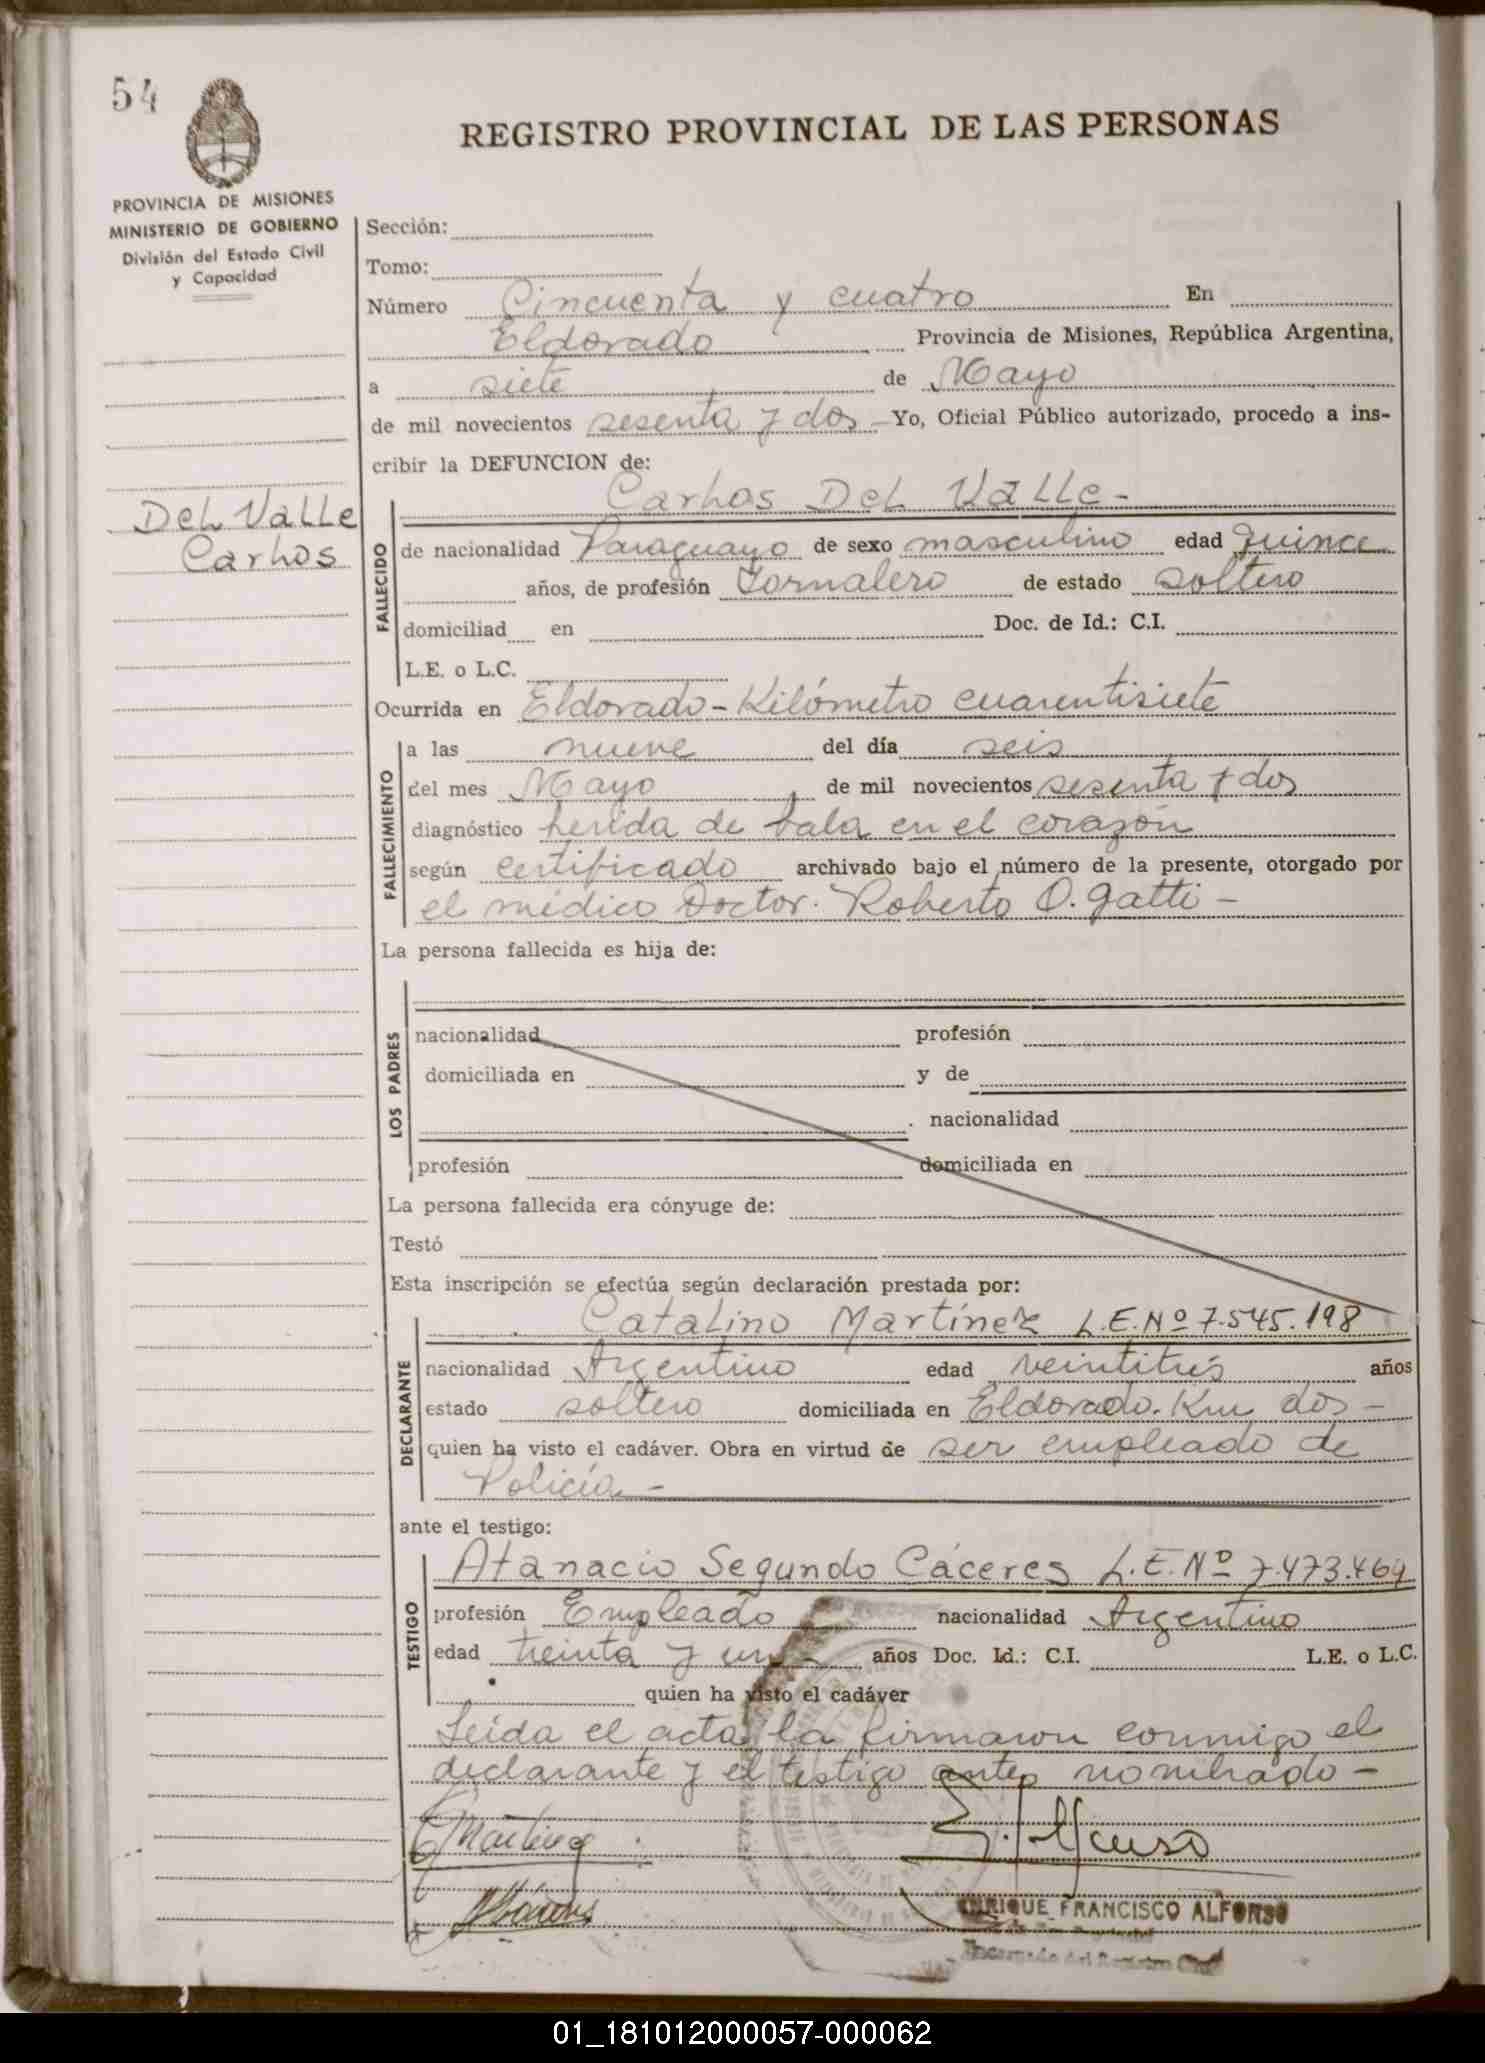 54
REGISTRO PROVINCIAL DE LAS PERSONAS
PROVINCIA DE MISIONES
MINISTERIO DE GOBIERNO
División del Estado Civil
y Capacidad
Sección:
Tomo:
Número Cincuenta y cuatro En
Eldorado Provincia de Misiones, República Argentina,
a siete de Mayo
de mil novecientos sesenta y dos - Yo, Oficial Público autorizado, procedo a ins-
cribir la DEFUNCION de:
Carlos Del Valle -
Del Valle
Carlos
FALLECIDO
de nacionalidad Paraguayo de sexo masculino edad Quince
años, de profesión Jornalero de estado soltero
domiciliad en Doc. de Id.: C.I.
L.E. o L.C.
Ocurrida en Eldorado - Kilómetro cuarentisiete
FALLECIMIENTO
a las nueve del día seis
del mes Mayo de mil novecientos sesenta y dos
diagnóstico herida de bala en el corazón
según certificado archivado bajo el número de la presente, otorgado por
el médico Doctor. Roberto O. Gatti -
La persona fallecida es hija de:
LOS PADRES
nacionalidad profesión
domiciliada en y de
. nacionalidad
profesión domiciliada en
La persona fallecida era cónyuge de:
Testó
Esta inscripción se efectúa según declaración prestada por:
DECLARANTE
Catalino Martínez L.E.Nº 7.545.198
nacionalidad Argentino edad veintitrés años
estado soltero domiciliada en Eldorado. Km dos -
quien ha visto el cadáver. Obra en virtud de ser empleado de
Policía -
ante el testigo:
TESTIGO
Atanacio Segundo Cáceres L.E.Nº 7.473.464
profesión Empleado nacionalidad Argentino
edad treinta y un - años Doc. Id.: C.I. L.E. o L.C.
quien ha visto el cadáver
Leída el acta, la firmaron conmigo el
declarante y el testigo antes nombrado -
CMartinez
E. Alfonso
ENRIQUE FRANCISCO ALFONSO
Encargado del Registro Civil
01_181012000057-000062